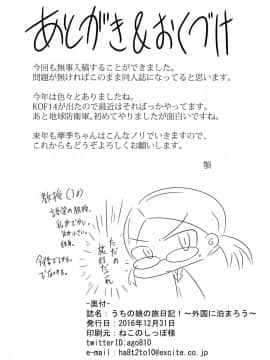 あとがき&おくづけ
今回も無事入稿することができました。
問題が無ければこのまま同人誌になってると思います。
今年は色々とありましたね。
KOF14が出たので最近はそればっかやってます。
あと地球防衛軍、初めてやりましたが面白いですね。
来年も摩季ちゃんはこんなノリでいきますので、
これからもどうぞよろしくお願いします。
顎
教授(30)
語学の教授。
ただの
旅好きだれ
-奥付-
誌名：うちの娘の旅日記！～外国に泊まろう～
発行日：2016年12月31日
印刷元：ねこのしっぽ様
twitterID：ago810
e-mail：ha8t2to10@excite.co.jp